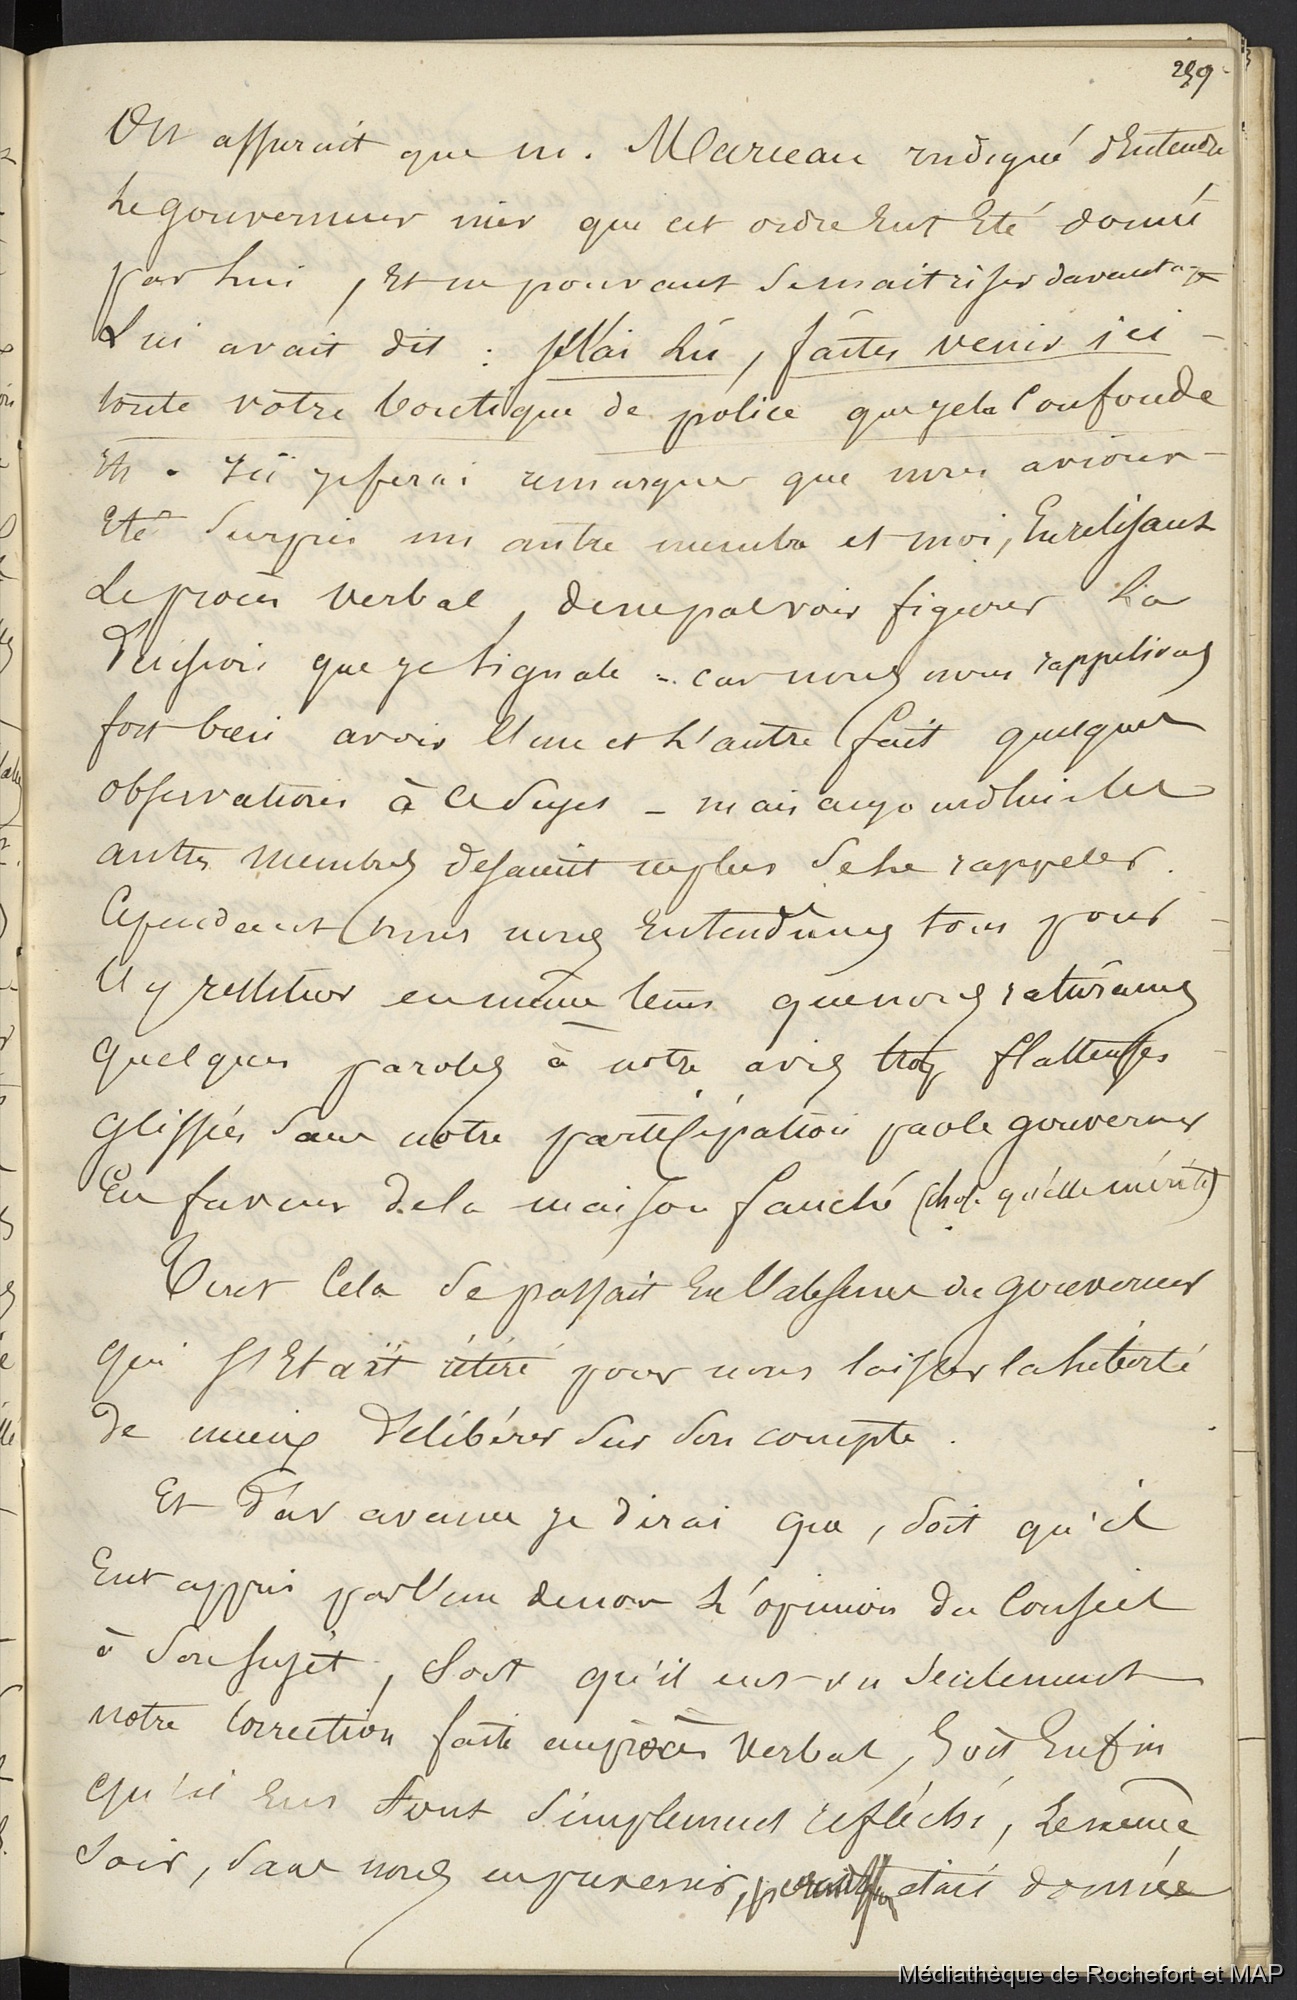 259
On assurait que m. Marceau indigné d'Entendre
Le gouverneur nier que cet ordre Eut Eté donné
par Lui, Et ne pouvant se maitriser davantage
Lui avait dit : Je l'ai Lû, faites venir ici
toute votre boutique de police que je la Confonde
Etc. Ici je ferai remarquer que nous avions
Eté Surpris un autre membre et moi, En relisant
Le procès verbal, de ne pas voir figurer La
Décision que je Signale - car nous nous rappelions
fort bien avoir l'un et L'autre fait quelques
observations à ce Sujet - mais aujourd'hui les
autres membres disaient ne plus se le rappeler.
Cependant nous nous Entendîmes tous pour
l'y restituer en même tems que nous raturâmes
quelques paroles à notre avis trop flatteuses
glissées Sans notre participation par le gouverneur
En faveur de la maison Fauché (chose qu'elle mérite)
Tout Cela Se passait En l'absence du gouverneur
qui s'Etait rétiré pour nous laisser la Liberté
de mieux Délibérer Sur Son compte.
Et D'avance je dirai que, Soit qu'il
Eut appris par l'un de nous L'opinion du Conseil
à Son Sujet, Soit qu'il eut vu Seulement
notre Correction faite au procès Verbal, Soit Enfin
qu'il Eut tout Simplement réfléchi, Le même
Soir, Sans nous en prévenir, était donnée
Médiathèque de Rochefort et MAP